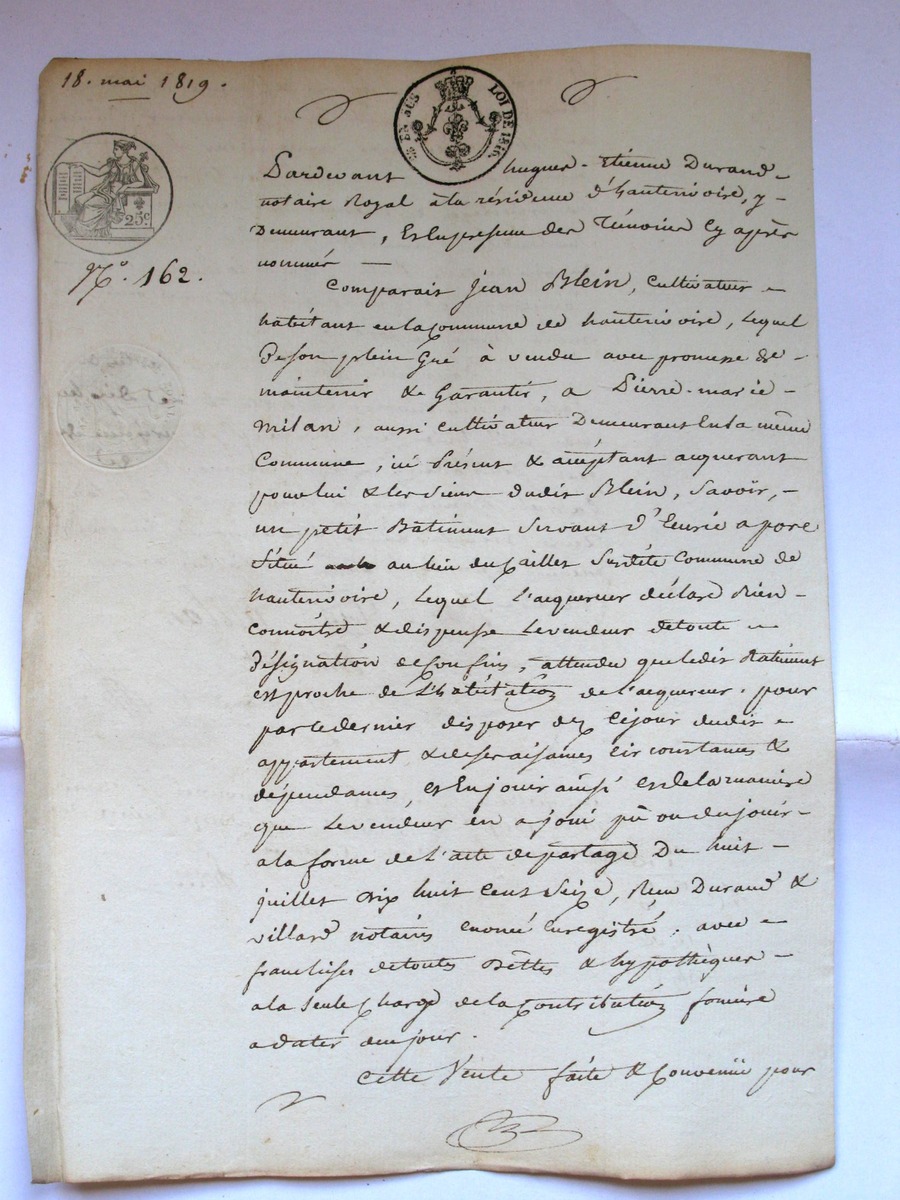 18. mai 1819.
EN SUS LOI DE 1816.
25c.
No. 162.
Pardevant hugues-Etienne Durand
notaire Royal à la résidence d'hauterivoire, y
Demeurant, Et En presence des Témoins Cy après
nommés
Comparait Jean Blein, Cultivateur
habitant en la Commune de hauterivoire, Lequel
De son plein Gré à vendu avec promesse de
maintenir & Garantir, a Pierre-marie
Milan, aussi Cultivateur Demeurant En la même
Commune, ici Présent & acceptant acquerant
pour lui & les siens dudit Blein, Savoir,
un petit Bâtiment Servant d'Eurie a porc
Situé au lieu du Cailler Susdite Commune de
hauterivoire, Lequel l'acquereur déclare Bien
Connoître & dispense Le vendeur de toute
Désignation de Confins, attendu que ledit Batiment
est proche de L'habitation de l'acquereur. pour
par ce dernier disposer dez Cejour dudit
appartement & de ses aisances circonstances &
dépendances, et En jouir ainsi et de la maniere
que Le vendeur en a joui pû ou du jouir
a la forme de L'acte de partage Du huit
juillet dix huit Cent Seize, Reçu Durand &
villard notaires Enregistré. avec
franchises de toutes Dettes & hypothèques
a la Seule Charge de la Contribution fonciere
a dater du jour.
Cette Vente faite & Convenüe pour